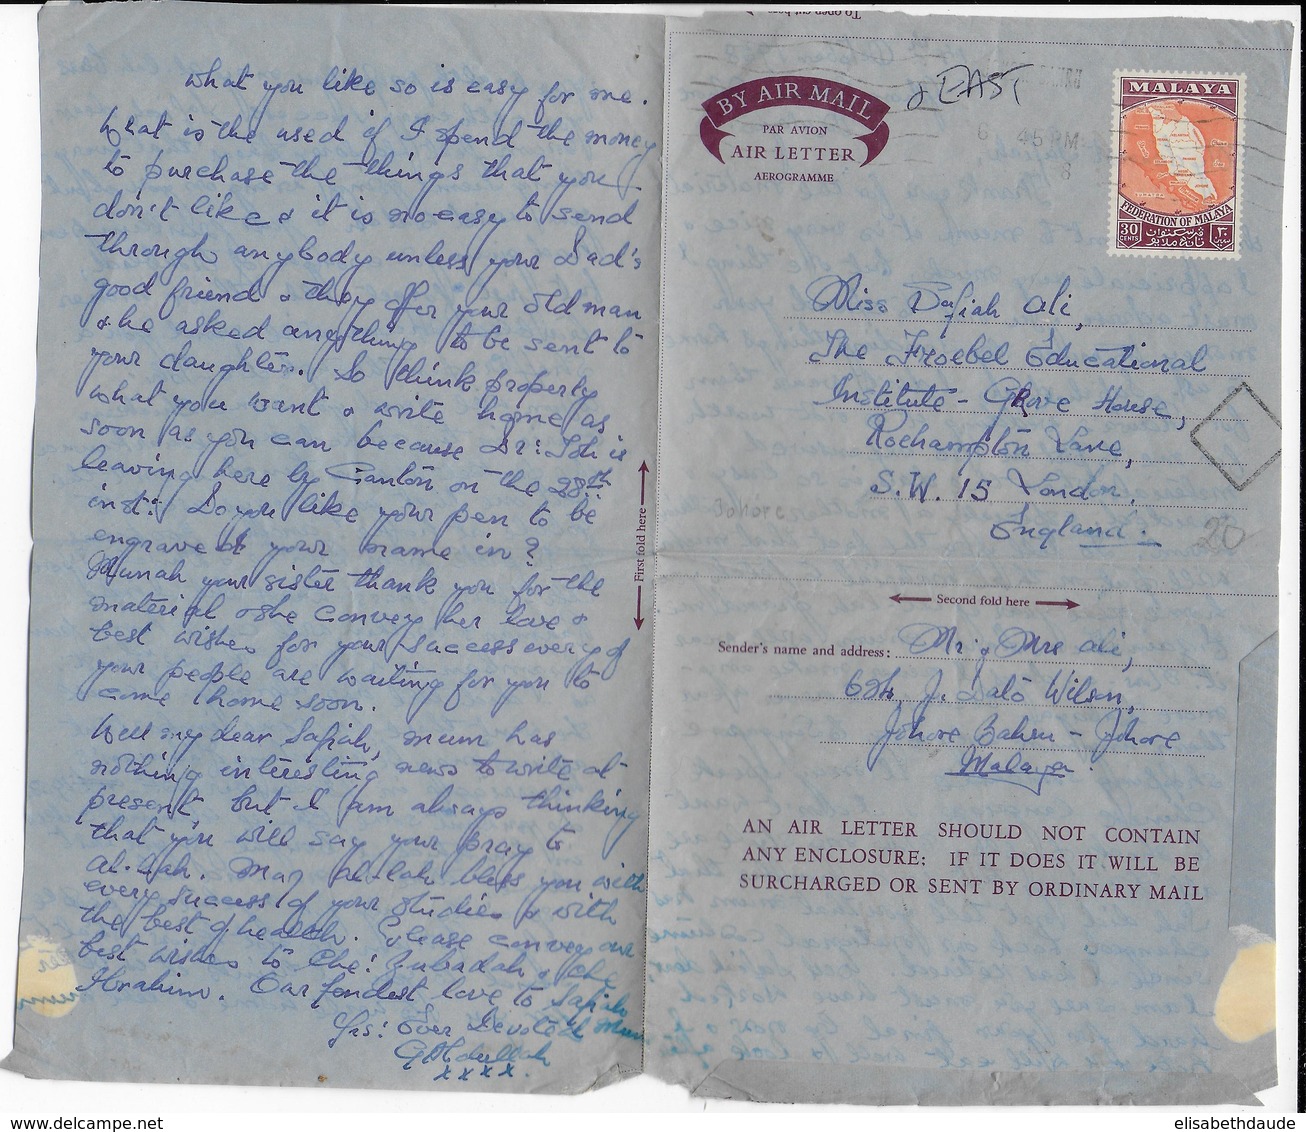 what you like so is easy for me.
What is the used if I spend the money
to purchase the things that you
don't like & it is no easy to send
through anybody unless your Dad's
good friend & they offer your old man
& he asked anything to be sent to
your daughter. So think properly
what you want & write home as
soon as you can because Dr: Ish is
leaving here by Canton on the 28th
inst: Do you like your pen to be
engraved your name in?
your sister thank you for the
material & she convey her love &
best wishes for your success every of
your people are waiting for you to
come home soon.
Well my dear Safiah, mum has
nothing interesting news to write at
present, but I am always thinking
that you will say your pray to
al-lah. May al-lah bless you with
every success of your studies & with
the best of health. Please convey our
best wishes to Che: Zubadah & Che
Ibrahim. Our fondest love to Safiah
Yrs: Ever Devoted Mum
xxxx.
First fold here
To open cut here
BY AIR MAIL
PAR AVION
AIR LETTER
AEROGRAMME
EAST
6 45 PM
8
MALAYA
FEDERATION OF MALAYA
30 CENTS
Miss Safiah Ali,
The Froebel Educational
Institute - Grove House,
Roehampton Lane,
S.W. 15 London,
Johore
England.
20
Second fold here
Sender's name and address: Mr & Mrs Ali,
J. Dato Wilson,
Johore Bahru - Johore
Malaya.
AN AIR LETTER SHOULD NOT CONTAIN
ANY ENCLOSURE; IF IT DOES IT WILL BE
SURCHARGED OR SENT BY ORDINARY MAIL
elisabethdaude